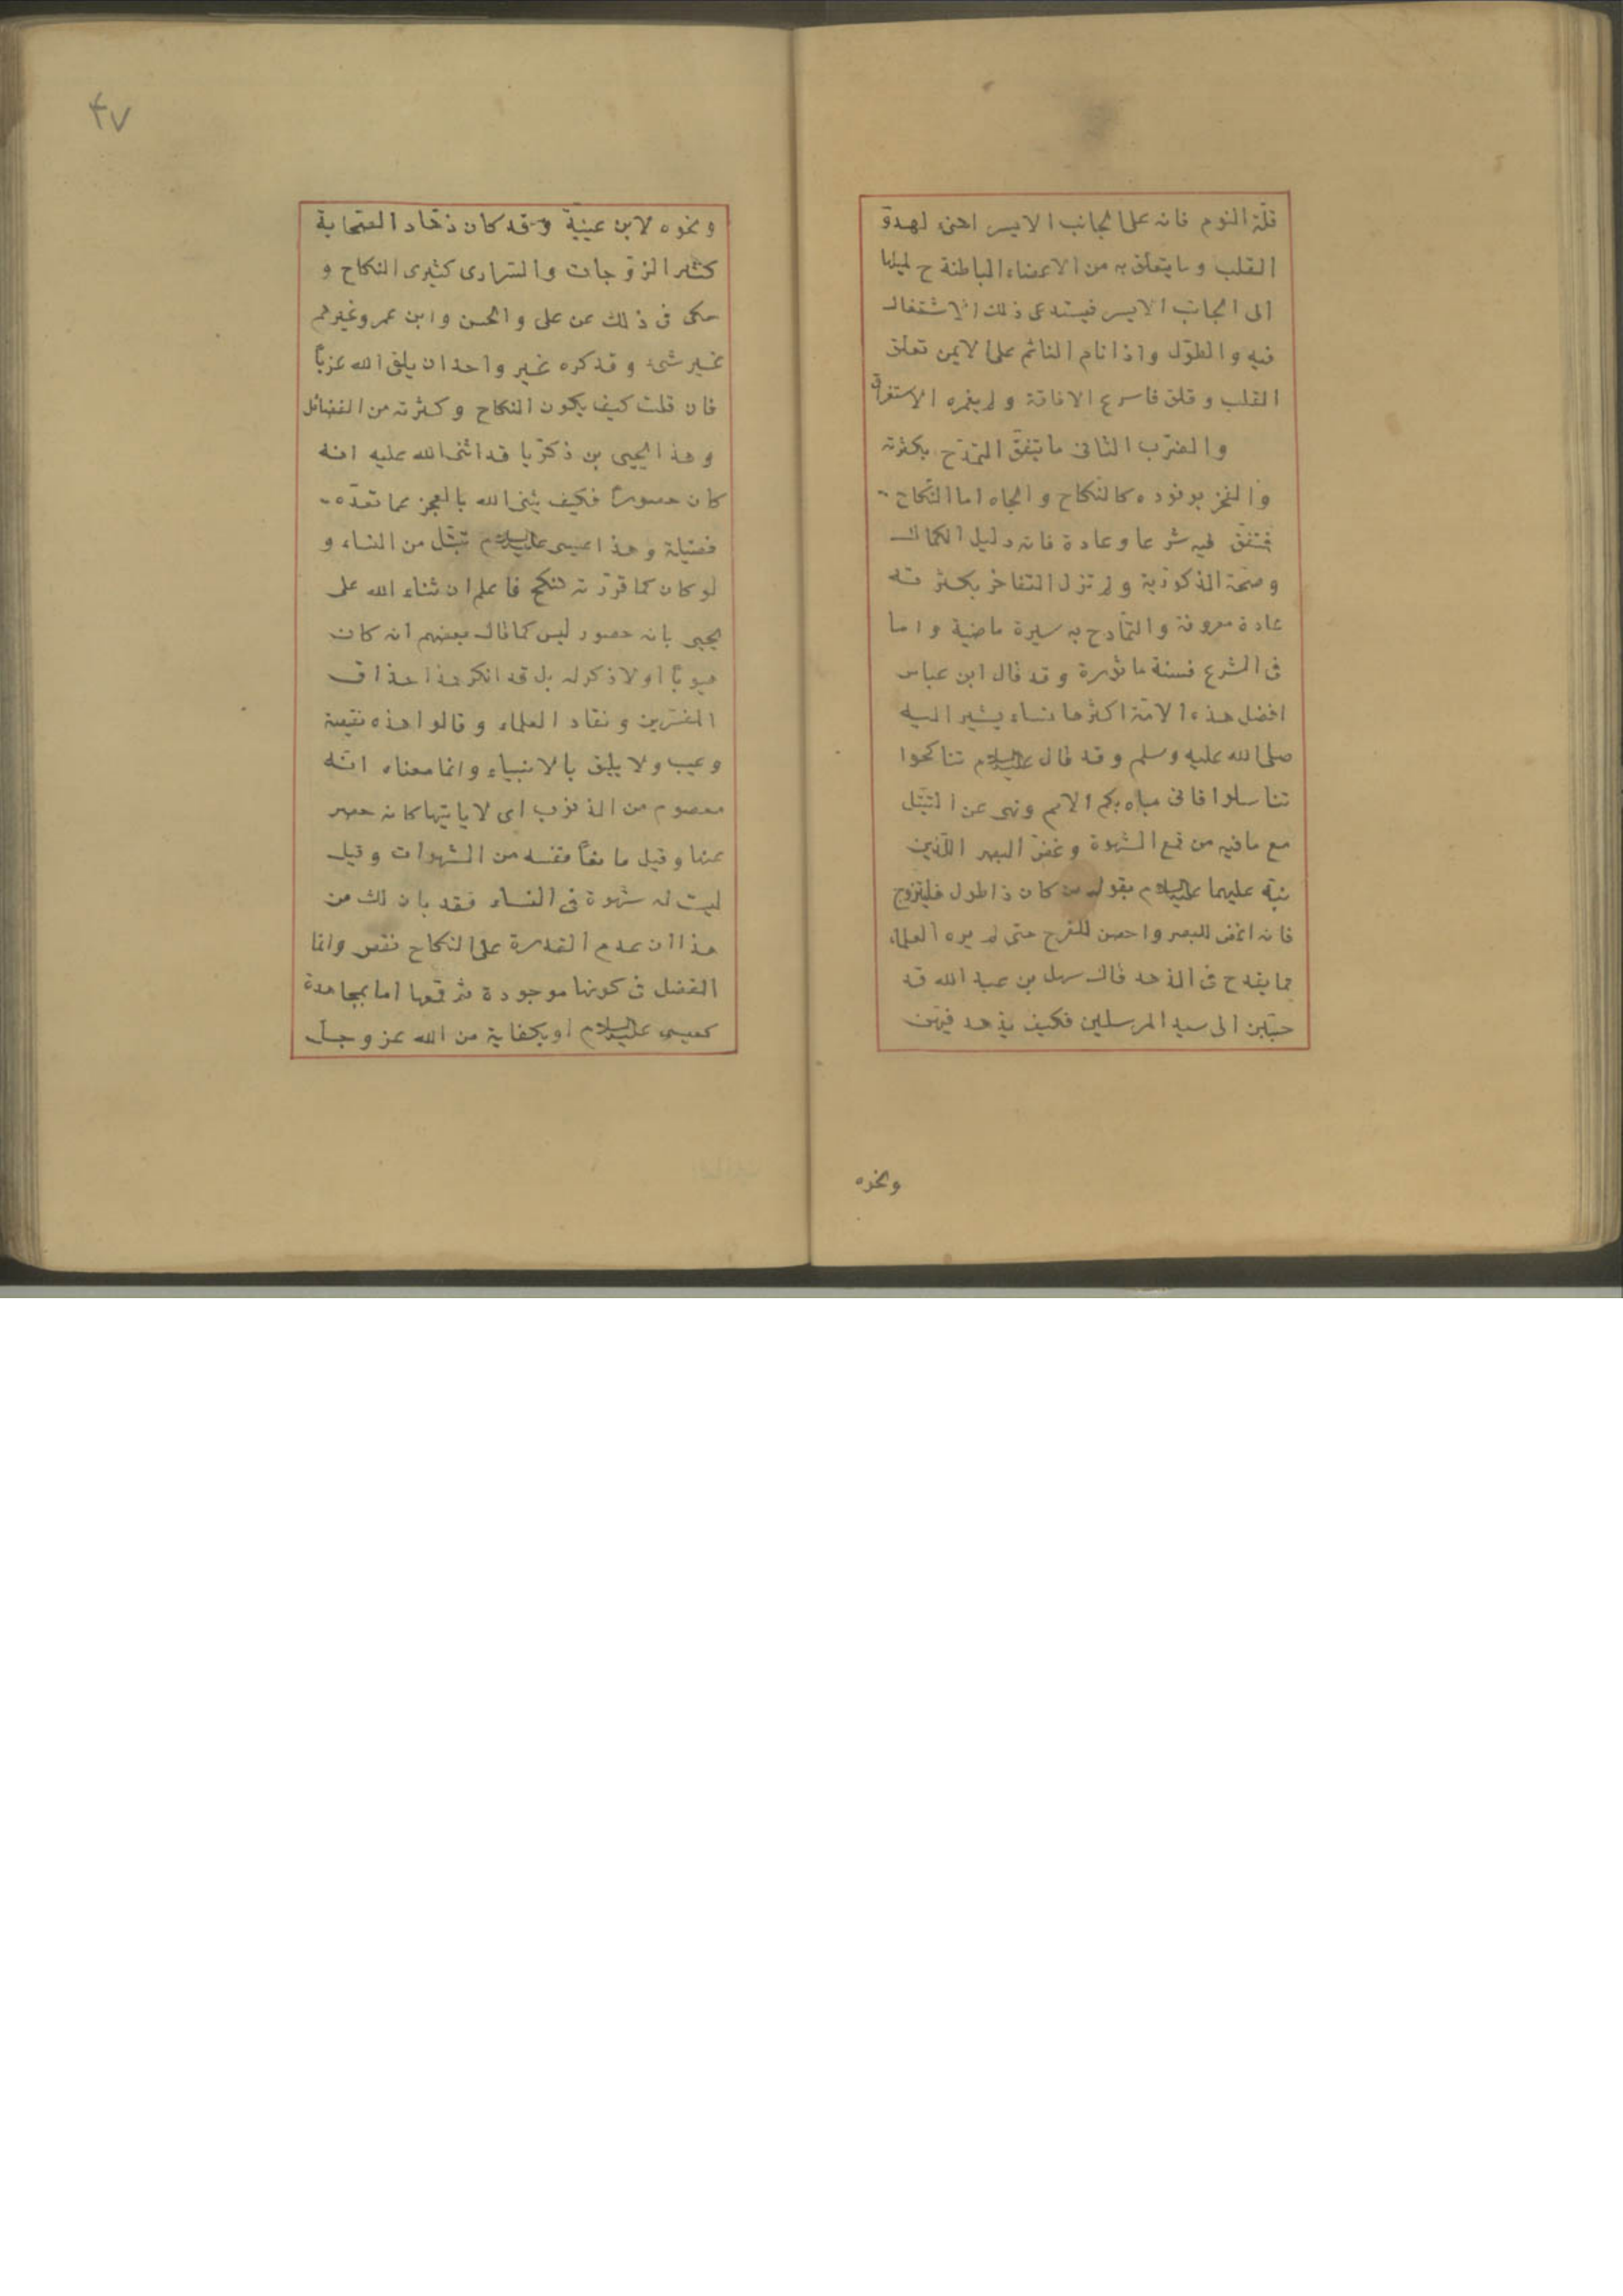 قلّة النوم فانه على الجانب الايسر اهنى لهدوّ
القلب وما يتعلق به من الاعضاء الباطنة ح لميلها
الى الجانب الايسر فيستدعى ذلك الاشتغال
فيه والطول واذا نام النائم على الايمن تعلق
القلب وقلق فاسرع الافاقة ولم يغمره الاستغراق
والضرب الثانى ما يتفق التمدّح بكثرته
والفخر بوفوده كالنكاح والجاه اما النكاح
فمتفق فيه شرعا وعادة فانه دليل الكمال
وصحّة الذكوريّة ولم تزل التفاخر بكثرته
عادة معروفة والتمادح به سيرة ماضية واما
فى الشرع فسنة ماثورة وقد قال ابن عباس
افضل هذه الامّة اكثرها نساء يشير اليه
صلى الله عليه وسلم وقد قال عليه السلام تناكحوا
تناسلوا فانى مباه بكم الامم ونهى عن التبتّل
مع ما فيه من قمع الشهوة وغضّ البصر اللّذين
نبّه عليهما عليه السلام بقوله من كان ذا طول فليتزوج
فانه اغض للبصر واحصن للفرج حتى لم يره العلماء
مما يقدح فى الزهد قال سهل بن عبد الله قد
حبّبن الى سيد المرسلين فكيف يزهد فيهن
ونحوه
٤٧
ونحوه لابن عيينة وقد كان زهّاد الصّحابة
كثير الزوجات والسّرارى كثيرى النكاح و
حكى فى ذلك عن على والحسن وابن عمر وغيرهم
غير شىء وقد كره غير واحد ان يلقى الله عزبًا
فان قلت كيف يكون النكاح وكثرته من الفضائل
وهذا يحيى بن زكريّا قد اثنى الله عليه انه
كان حصورًا فكيف يثنى الله بالعجز عما تعدّه
فضيلة وهذا عيسى عليه السلام تبتّل من النساء و
لو كان كما قرّرته لنكح فاعلم ان ثناء الله على
يحيى بانه حصور ليس كما قال بعضهم انه كان
هيوبًا او لا ذكر له بل قد انكر هذا حذاق
المفسّرين ونقاد العلماء وقالوا هذه نقيصة
وعيب ولا يليق بالانبياء وانما معناه انّه
معصوم من الذنوب اى لا ياتيها كانه حصر
عنها وقيل مانعًا نفسه من الشهوات وقيل
ليست له شهوة فى النساء فقد بان لك من
هذا ان عدم القدرة على النكاح نقص وانما
الفضل فى كونها موجودة ثم قمعها اما بمجاهدة
كعيسى عليه السلام او بكفاية من الله عز وجل